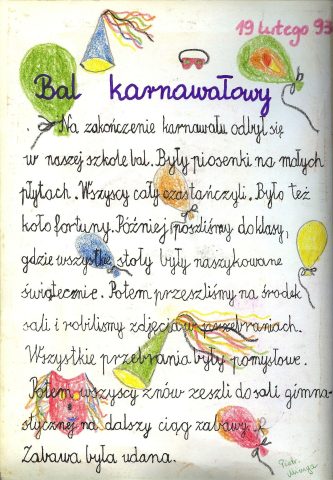 19 lutego 93
Bal karnawałowy
Na zakończenie karnawału odbył się
w naszej szkole bal. Były piosenki na małych
płytach. Wszyscy cały czas tańczyli. Było też
koło fortuny. Później poszliśmy do klasy,
gdzie wszystkie stoły były naszykowane
świątecznie. Potem przeszliśmy na środek
sali i robiliśmy zdjęcia w przebraniach.
Wszystkie przebrania były pomysłowe.
Potem wszyscy znów zeszli do sali gimna-
stycznej na dalszy ciąg zabawy.
Zabawa była udana.
Piotr